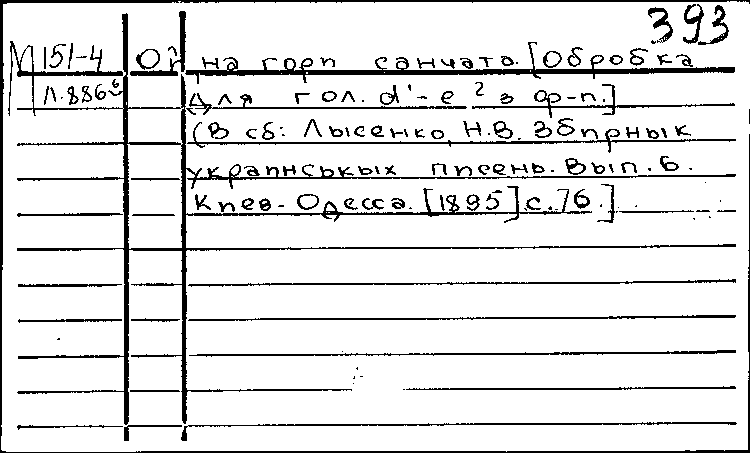 393
М 151-4 Ой на горі санчата. [Обробка
Л.886б для гол. d'-e² з ф-п.]
(В сб: Лысенко, Н.В. Збірнык
украінськых пісень. Вып. 6.
Кіев-Одесса. [1895] с. 76.]